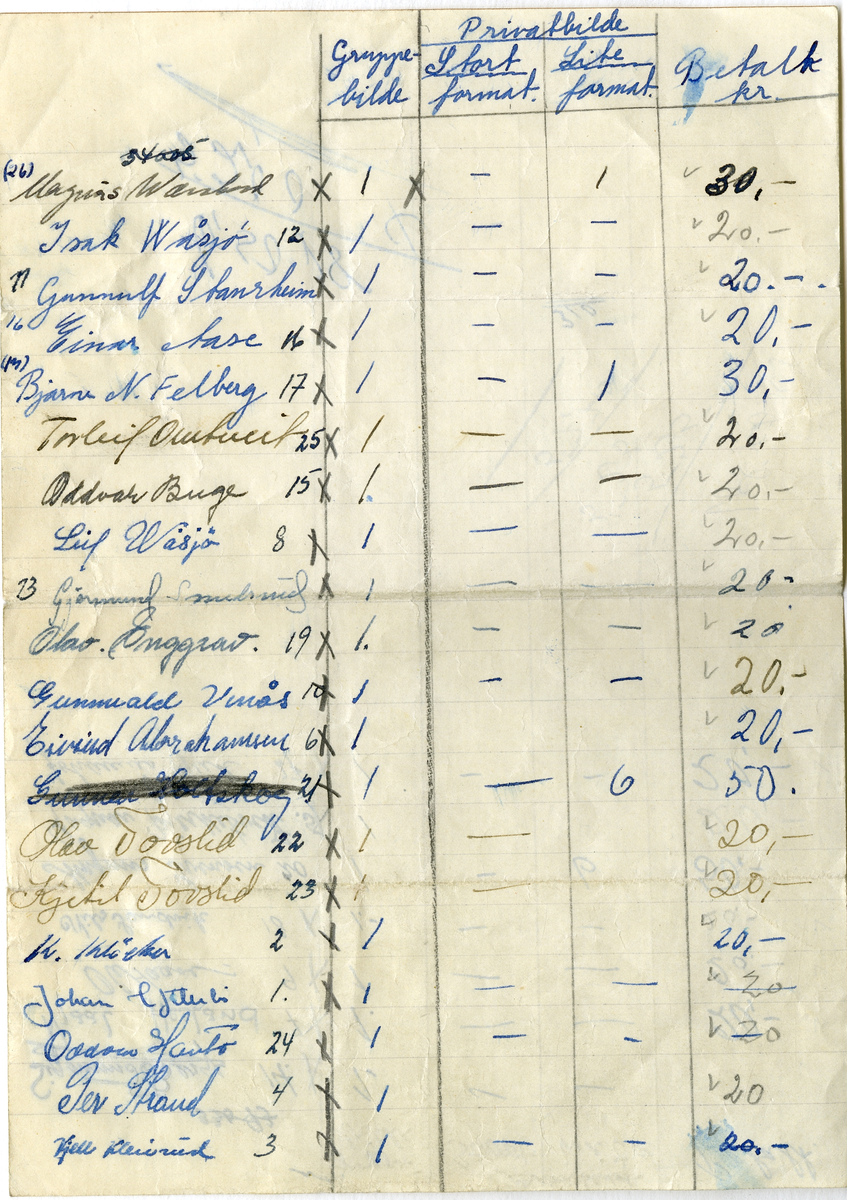 Privatbilde
Gruppe-bilde Stort format. Lite format. Betalt kr.
(26) Magnus X 1 X – 1 30,-
Isak Wåsjö 12 X 1 – – 20.-
11 Gunnulf Stanrheim X 1 – – 20.-
16 Einar Aase 16 X 1 – – 20,-
(17) Bjarne N. Felberg 17 X 1 – 1 30,-
Torleif 25 X 1 – – 20.-
Oddvar Buge 15 X 1. – – 20,-
Leif Wåsjö 8 X 1 – – 20,-
13 Gjermund X 1 – – 20-
Olav. 19 X 1. – – 20
Gunnvald Vraas 10 X 1 – – 20.-
Eivind Abrahamsen 6 X 1 20,-
Gunnar 21 X 1 – 6 50.
Olav Tovslid 22 X 1 – 20,-
Kjetil Tovslid 23 X 1 – 20,-
K. Klöcker 2 X 1 20,-
Johan 1. X 1 – – 20
Oddvar 24 X 1 – - 20
Per Strand 4 X 1 20
3 X 1 – – 20.-